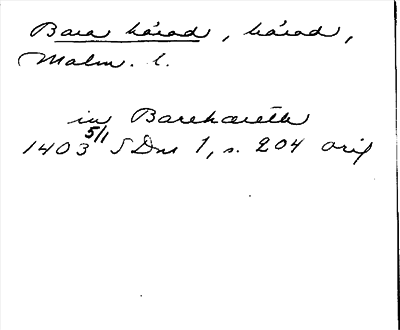 Bara härad, härad,
Malm. l.
in Barehæreth
1403 5/1 SDns 1, s. 204 orig